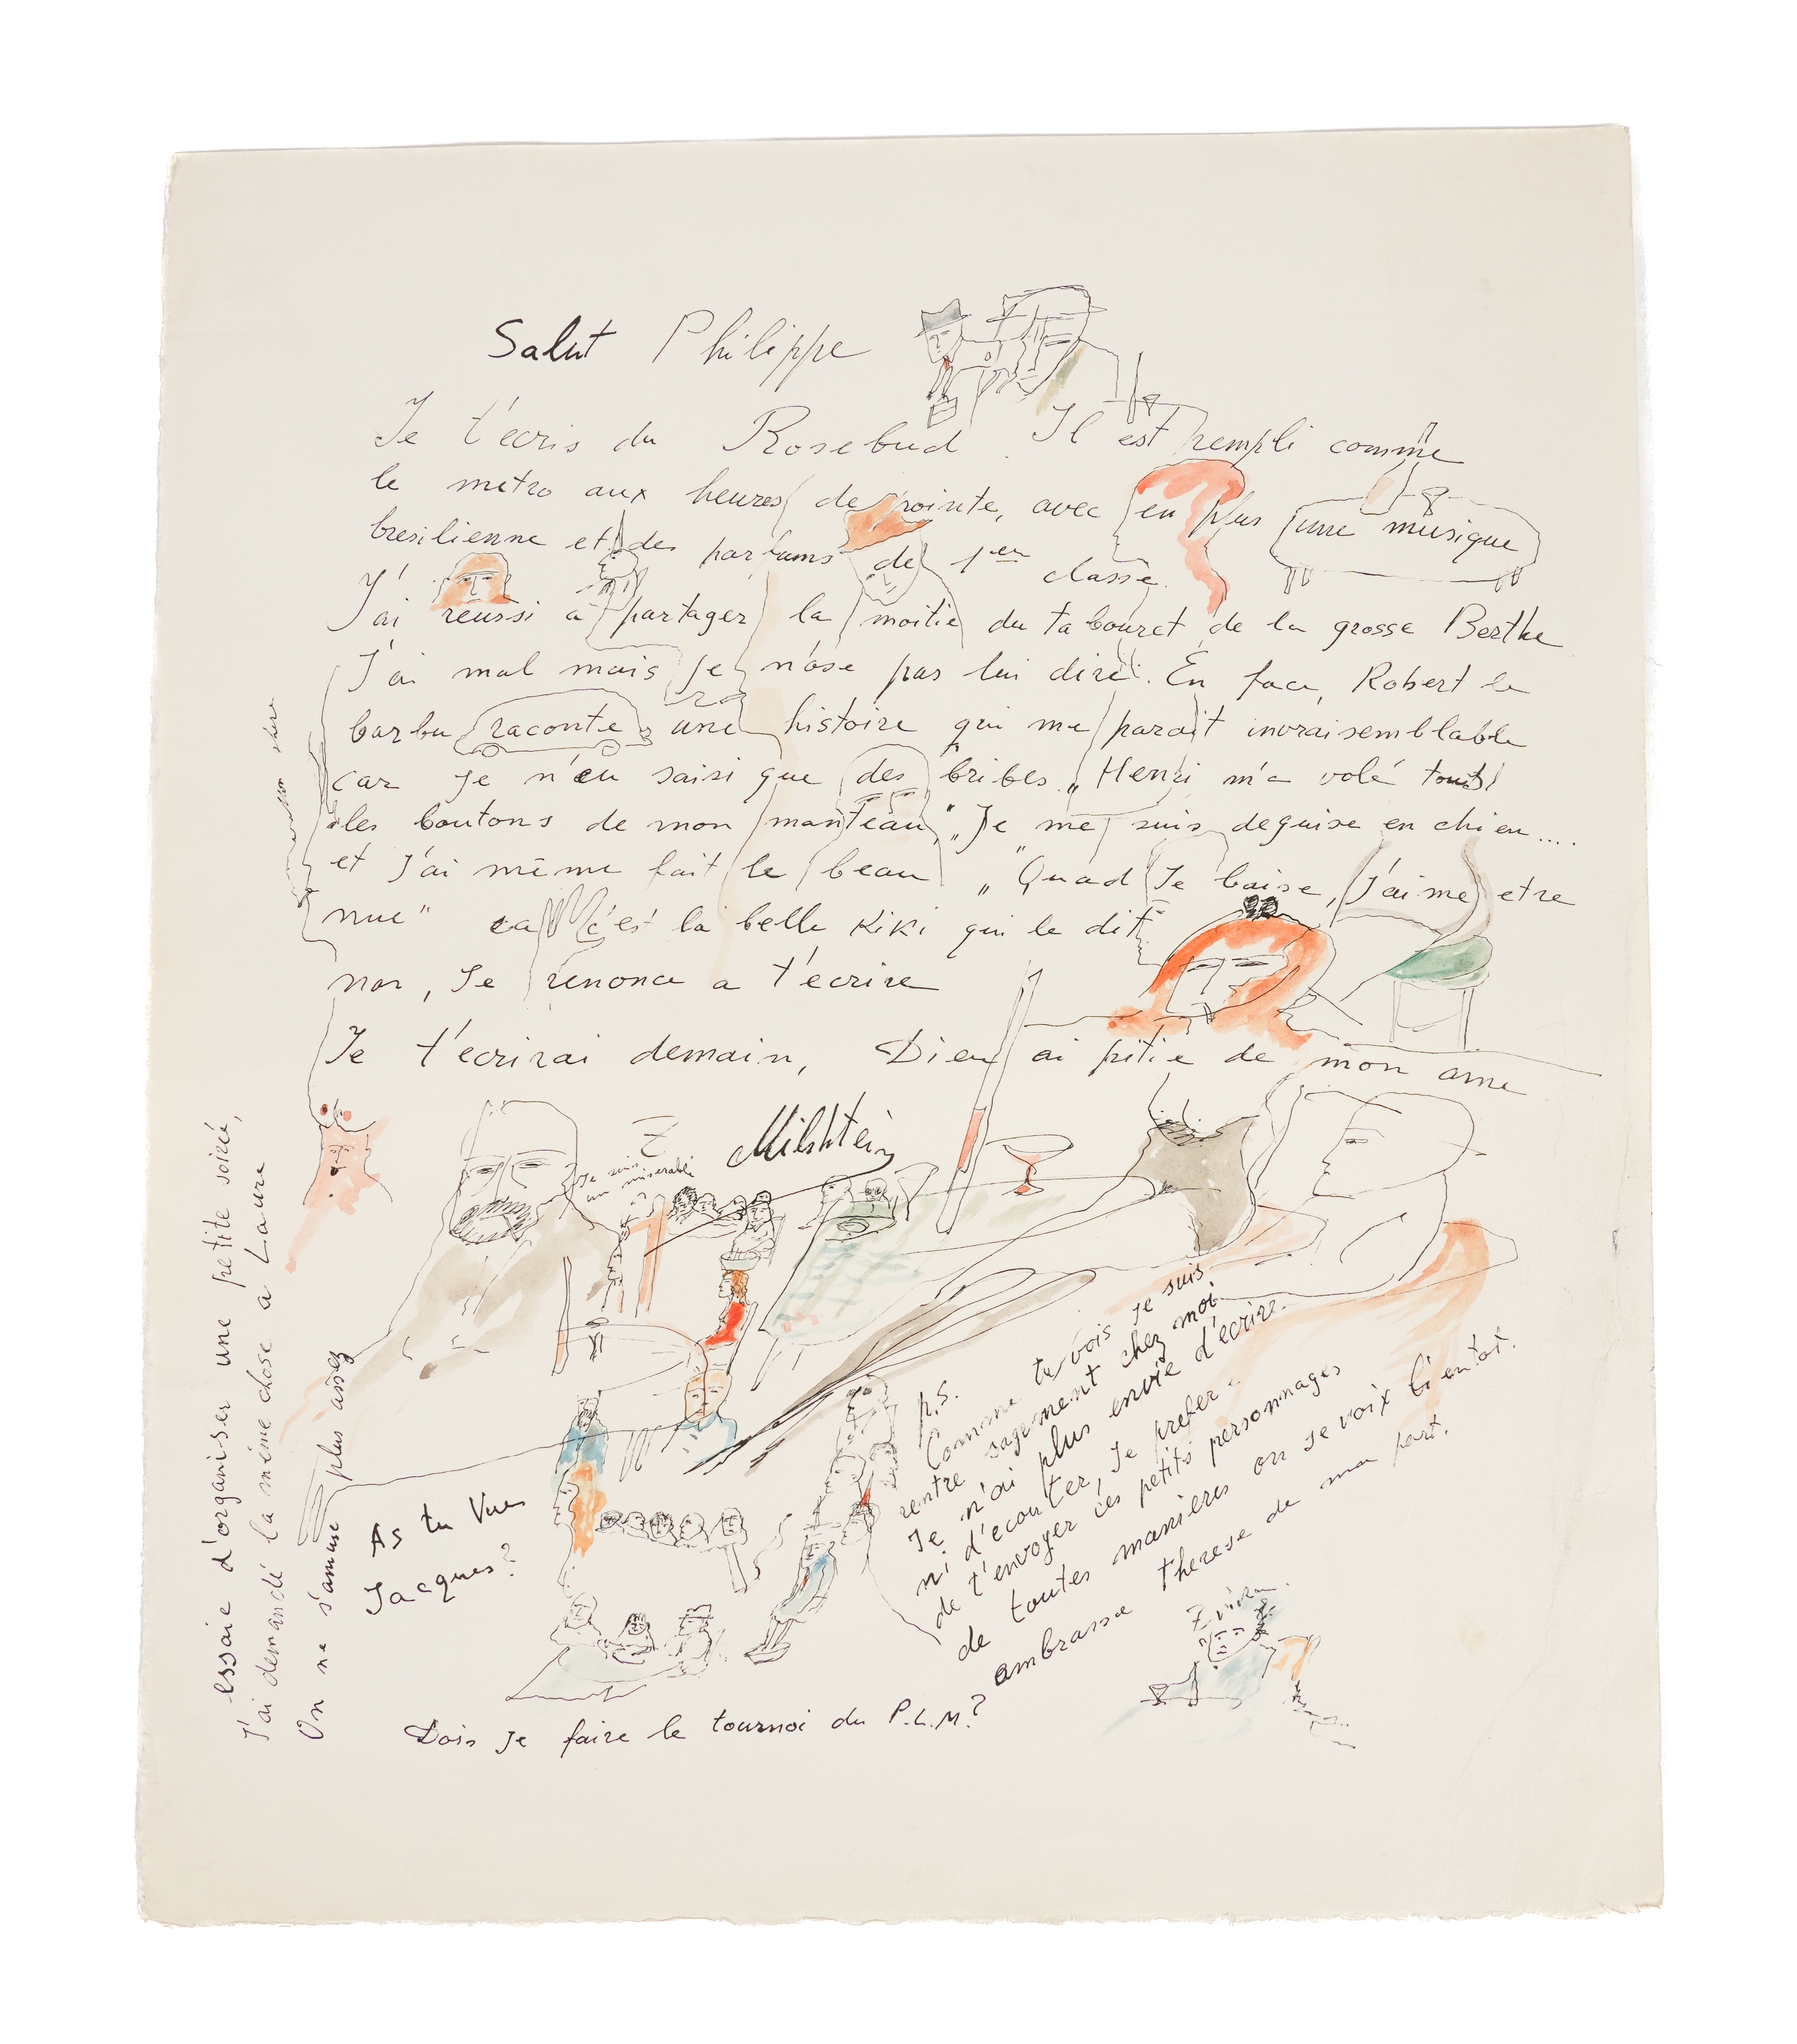 Salut Philippe
Je t'écris du Rosebud. Il est rempli comme
le metro aux heures de pointe, avec en plus une musique
bresilienne et des parfums de 1er classe.
J'ai réussi à partager la moitié du tabouret de la grosse Berthe
J'ai mal mais je n'ose pas lui dire. En face, Robert le
barbu raconte une histoire qui me parait invraisemblable
car je n'en saisi que des bribes. "Henri m'a volé touts
les boutons de mon manteau", "Je me suis deguise en chien....
et J'ai même fait le beau "Quad Je baise, J'aime etre
nue" ca c'est la belle Kiki qui le dit
non, Je renonce a t'ecrire
Je t'ecrirai demain, Dieu ai pitie de mon ame
Z Milshtein
Je suis
un miserable
p.s.
Comme tu vois je suis
rentre sagement chez moi
Je n'ai plus envie d'ecrire
ni d'ecouter, Je prefere
de t'envoyer ces petits personnages
de toutes manieres on se voix bientot.
ambrasse Therese de ma part.
Zwika
As tu Vue
Jacques?
Dois Je faire le tournoi du P.L.M?
essaie d'organiser une petite soirée,
J'ai demandé la même chose a Laure
On ne s'amuse plus assez